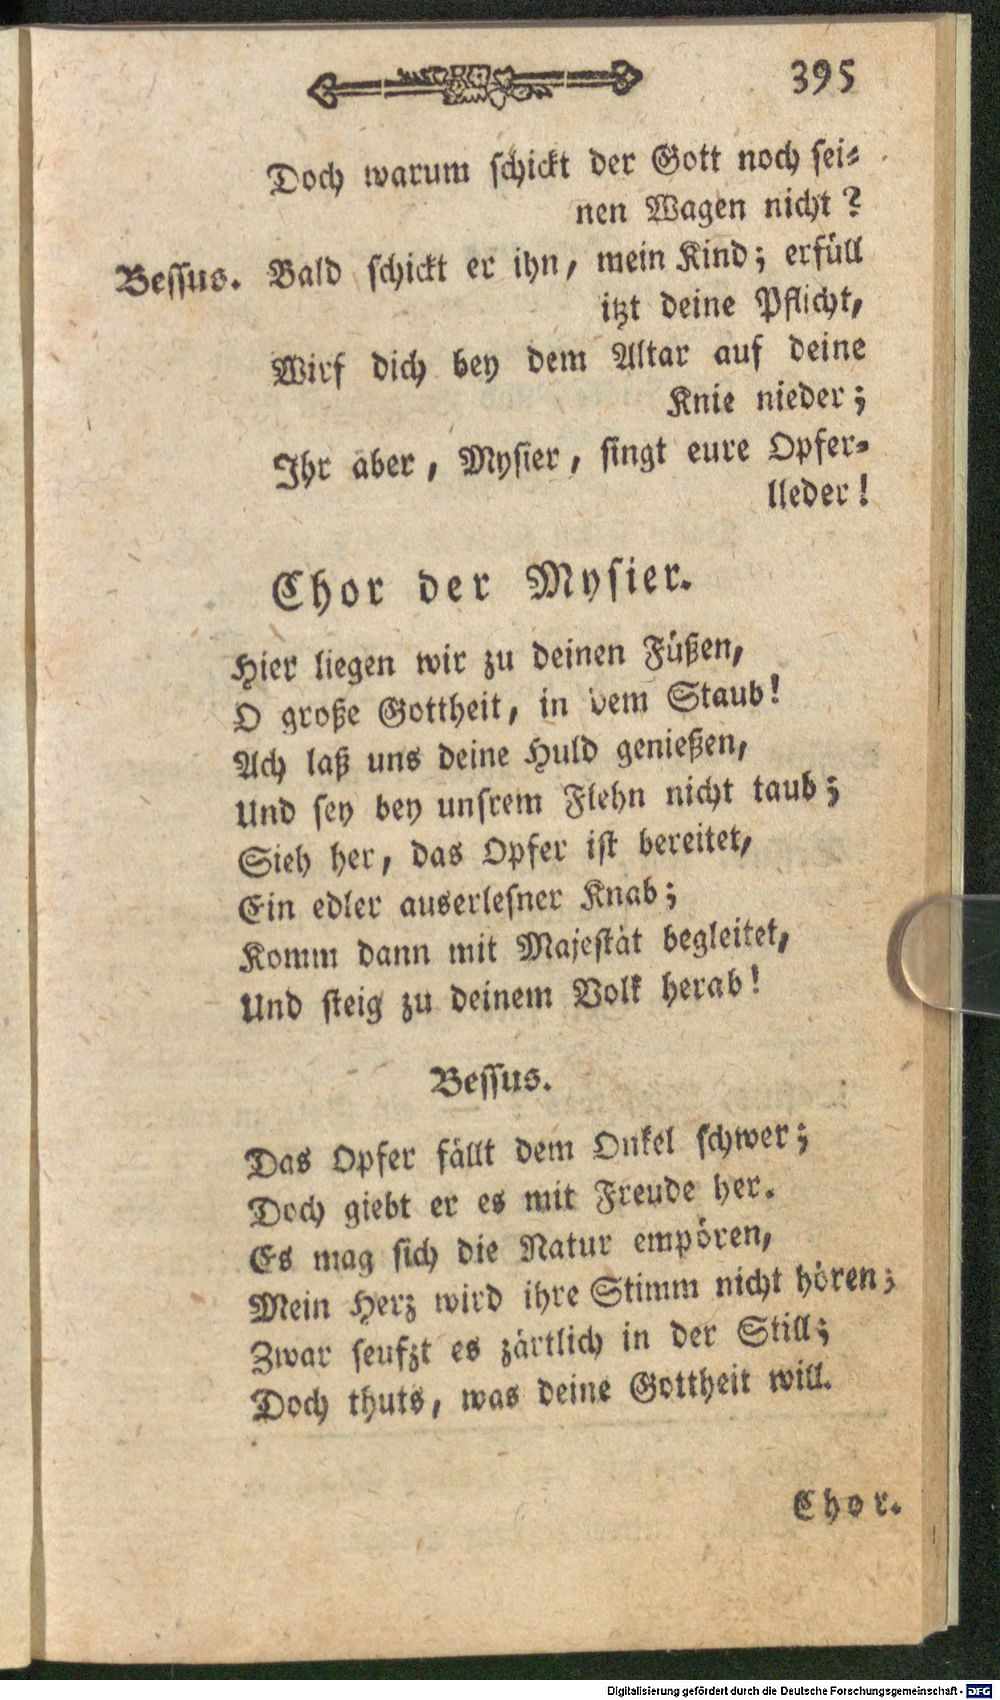 395
Doch warum schickt der Gott noch sei-
nen Wagen nicht?
Bessus. Bald schickt er ihn, mein Kind; erfüll
itzt deine Pflicht,
Wirf dich bey dem Altar auf deine
Knie nieder;
Ihr aber, Mysier, singt eure Opfer-
lleder!
Chor der Mysier.
Hier liegen wir zu deinen Füßen,
O große Gottheit, in dem Staub!
Ach laß uns deine Huld genießen,
Und sey bey unsrem Flehn nicht taub;
Sieh her, das Opfer ist bereitet,
Ein edler auserlesner Knab;
Komm dann mit Majestät begleitet,
Und steig zu deinem Volk herab!
Bessus.
Das Opfer fällt dem Onkel schwer;
Doch giebt er es mit Freude her.
Es mag sich die Natur empören,
Mein Herz wird ihre Stimm nicht hören;
Zwar seufzt es zärtlich in der Still;
Doch thuts, was deine Gottheit will.
Chor.
Digitalisierung gefördert durch die Deutsche Forschungsgemeinschaft - DFG